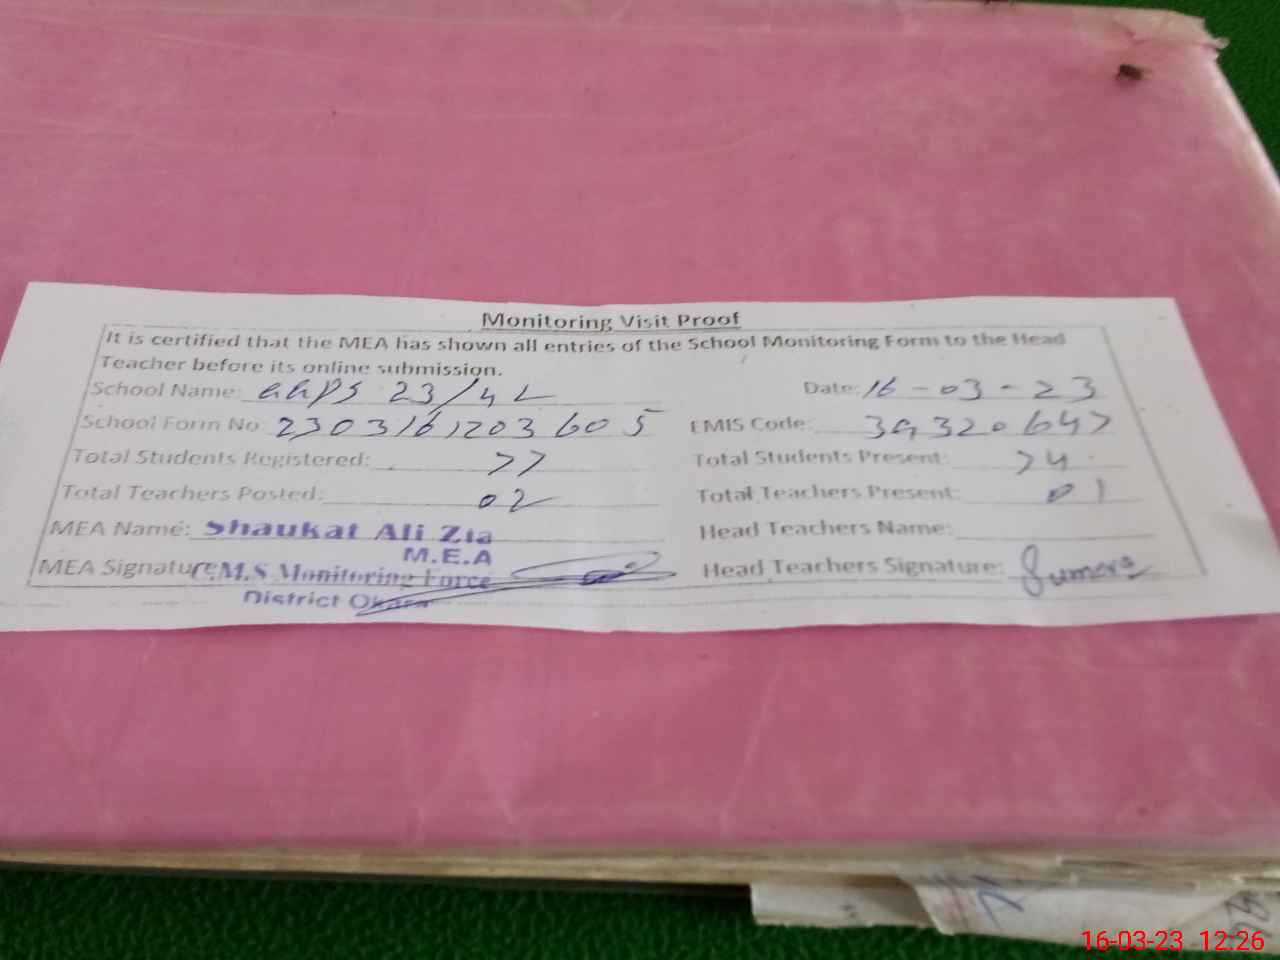 Monitoring Visit Proof
It is certified that the MEA has shown all entries of the School Monitoring Form to the Head
Teacher before its online submission.
School Name: GGPS 23/4L Date: 16-03-23
School Form No: 2303161203605 EMIS Code: 39320647
Total Students Registered: 77 Total Students Present: 74
Total Teachers Posted: 02 Total Teachers Present: 01
MEA Name: Shaukat Ali Zia Head Teachers Name:
M.E.A
MEA Signature: C.M.S Monitoring Force Head Teachers Signature: Sumera
District Okara
16-03-23 12:26